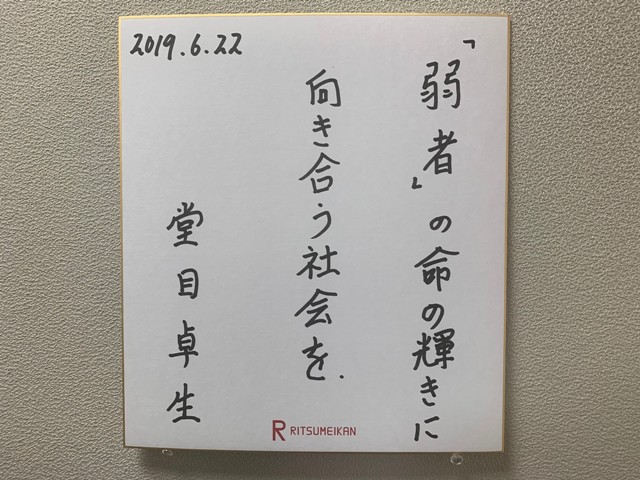 「弱者」の命の輝きに
向き合う社会を.
堂目卓生
2019.6.22
R RITSUMEIKAN